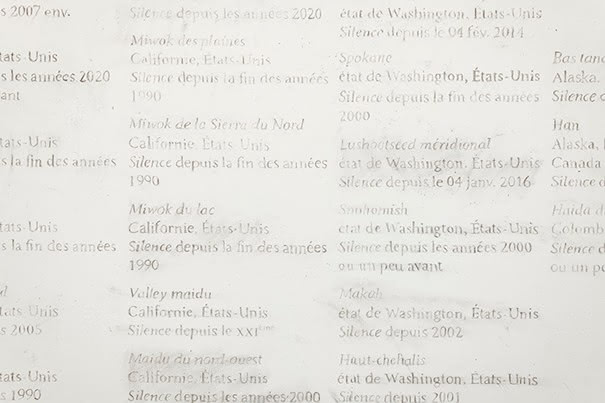 s 2007 env.
tats-Unis
s les années 2020
ant
tats-Unis
s la fin des années
tats-Unis
s la fin des années
d
tats-Unis
s 2005
tats-Unis
s 1990
Silence depuis les années 2020
Miwok des plaines
Californie, États-Unis
Silence depuis la fin des années
1990
Miwok de la Sierra du Nord
Californie, États-Unis
Silence depuis la fin des années
1990
Miwok du lac
Californie, États-Unis
Silence depuis la fin des années
1990
Valley maidu
Californie, États-Unis
Silence depuis le XXIème
Maidu du nord-ouest
Californie, États-Unis
Silence depuis les années 2000
état de Washington, États-Unis
Silence depuis le 04 fév. 2014
Spokane
état de Washington, États-Unis
Silence depuis la fin des années
2000
Lushootseed méridional
état de Washington, États-Unis
Silence depuis le 04 janv. 2016
Snohomish
état de Washington, États-Unis
Silence depuis les années 2000
ou un peu avant
Makah
état de Washington, États-Unis
Silence depuis 2002
Haut-chehalis
état de Washington, États-Unis
Silence depuis 2001
Bas tanc
Alaska,
Silence d
Han
Alaska, É
Canada
Silence d
Haida d
Colomb
Silence d
ou un p